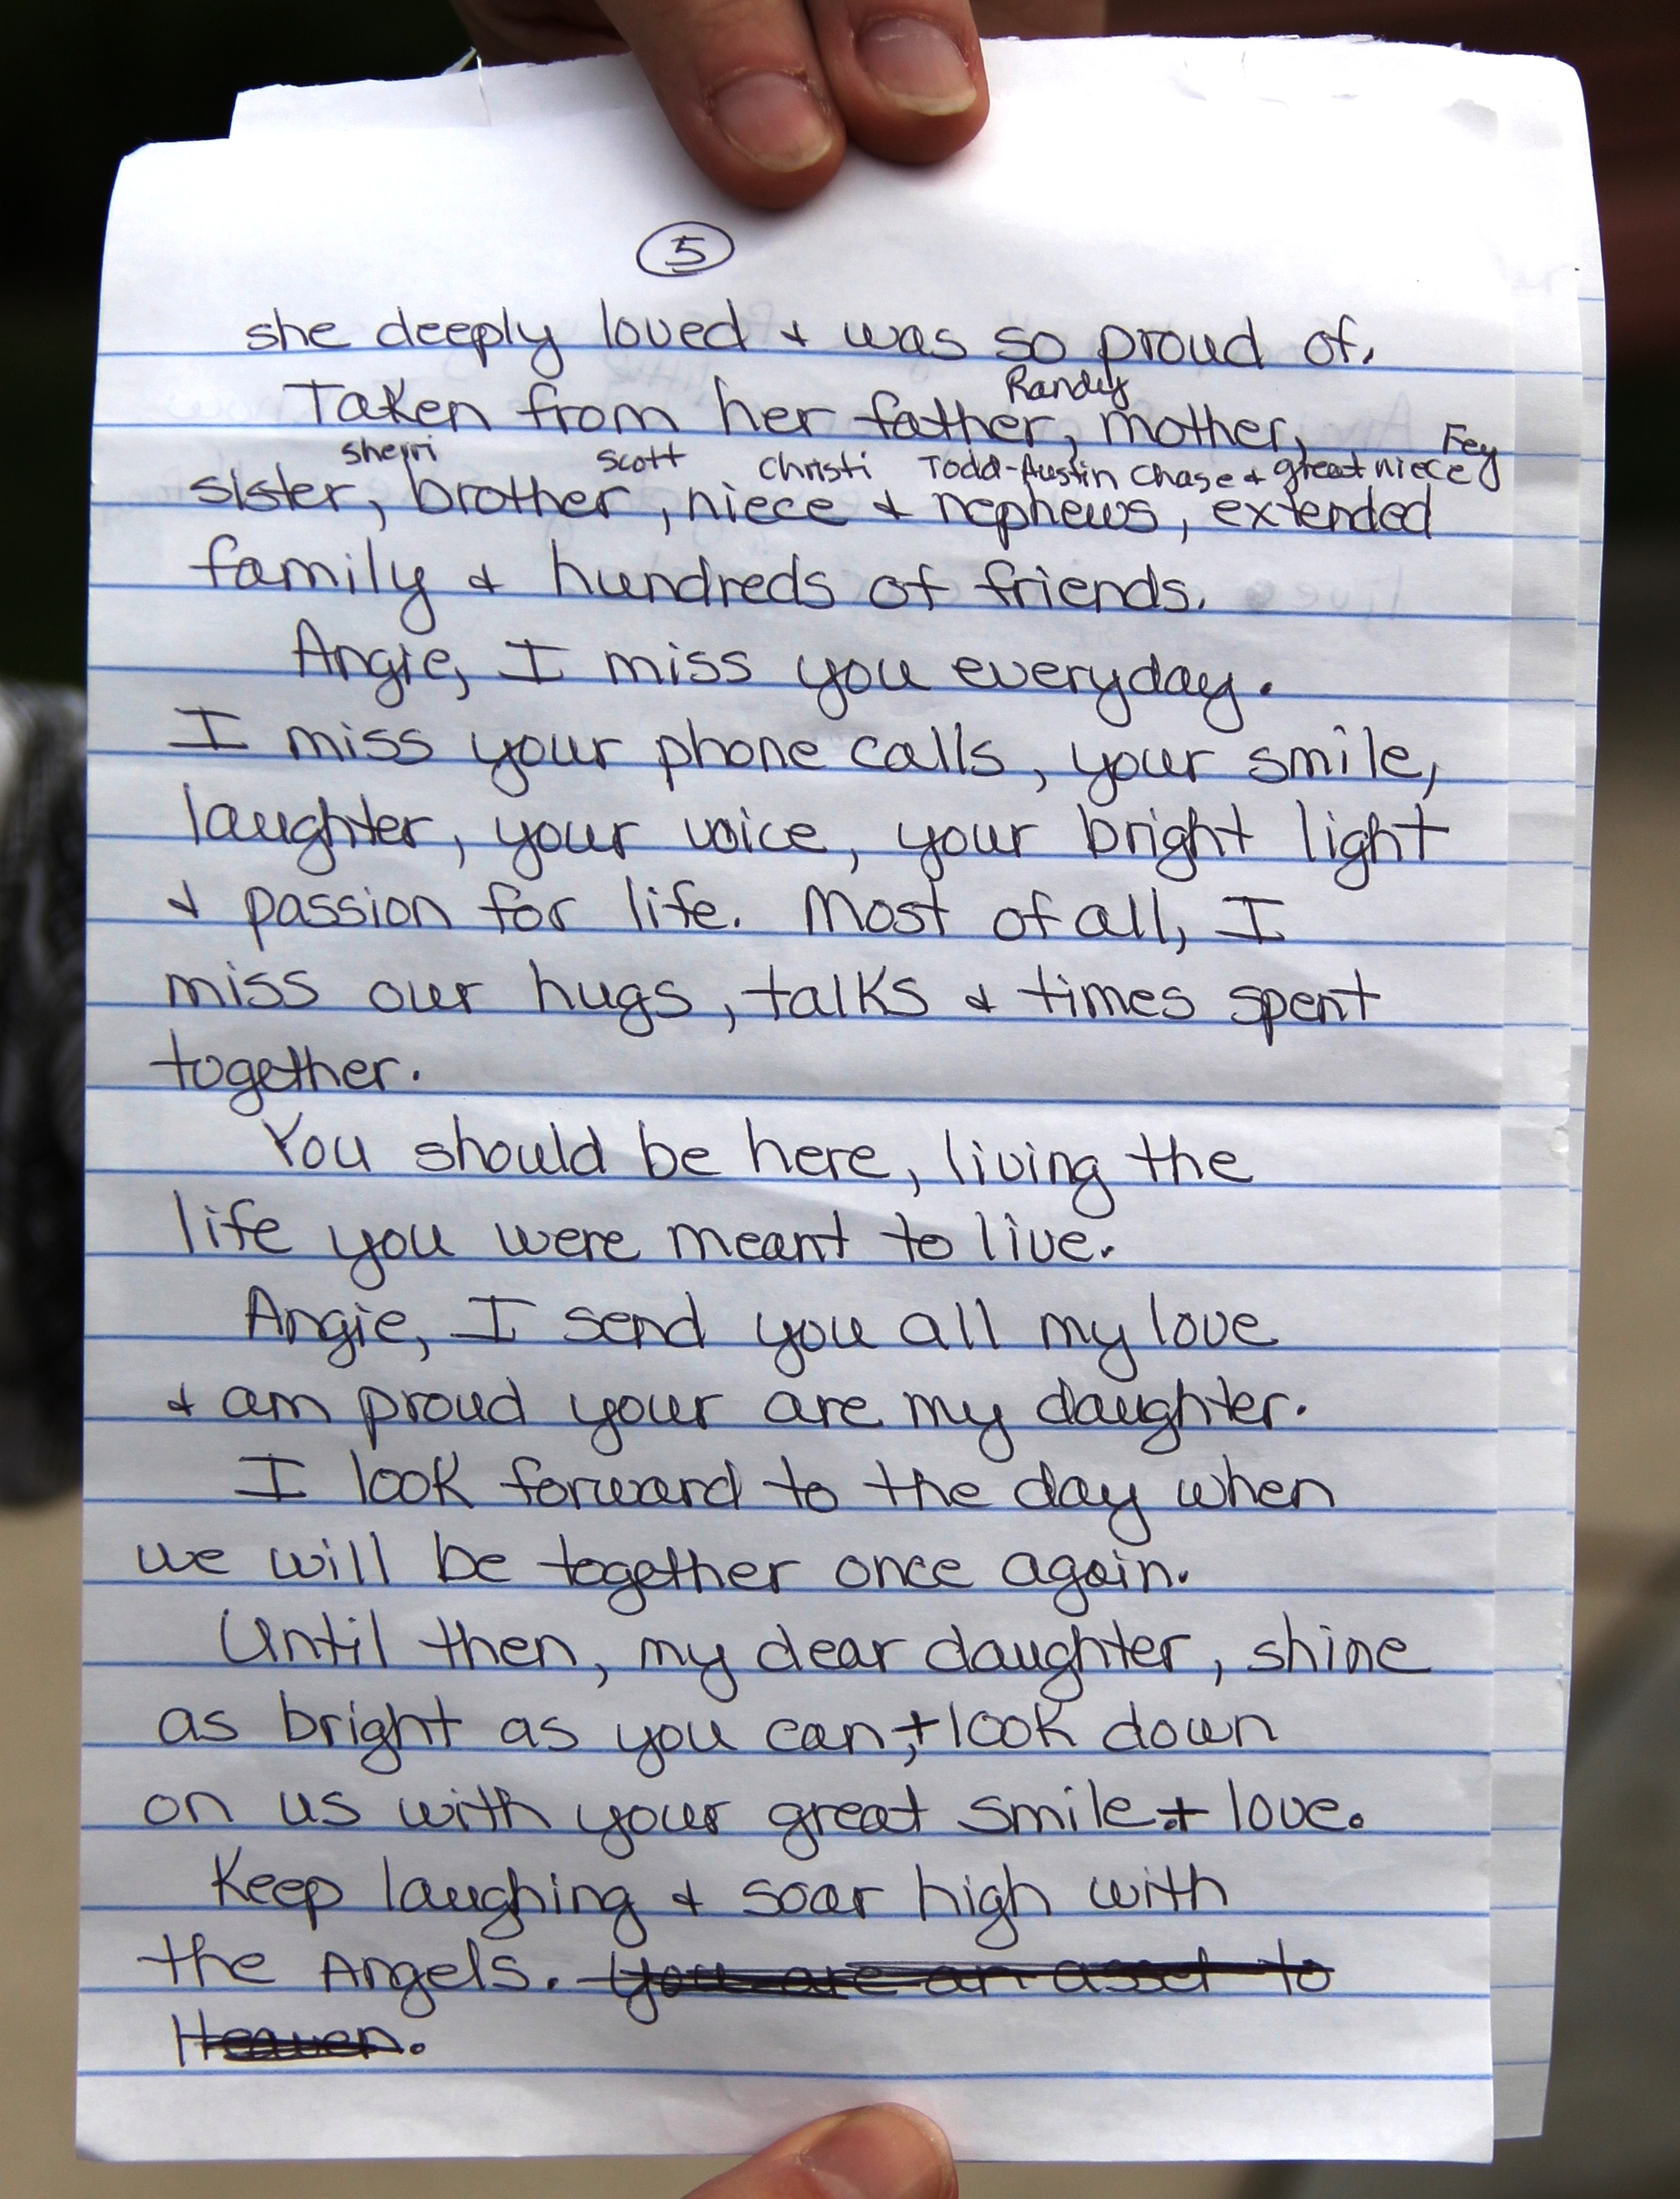 5
she deeply loved & was so proud of.
Randy
Taken from her father, mother,
sherri scott Christi Todd-Austin Chase & great niece Fey
sister, brother, niece & nephews, extended
family & hundreds of friends.
Angie, I miss you everyday.
I miss your phone calls, your smile,
laughter, your voice, your bright light
& passion for life. Most of all, I
miss our hugs, talks & times spent
together.
You should be here, living the
life you were meant to live.
Angie, I send you all my love
& am proud your are my daughter.
I look forward to the day when
we will be together once again.
Until then, my dear daughter, shine
as bright as you can, + look down
on us with your great smile. + love.
Keep laughing & soar high with
the Angels. You are an asset to
Heaven.